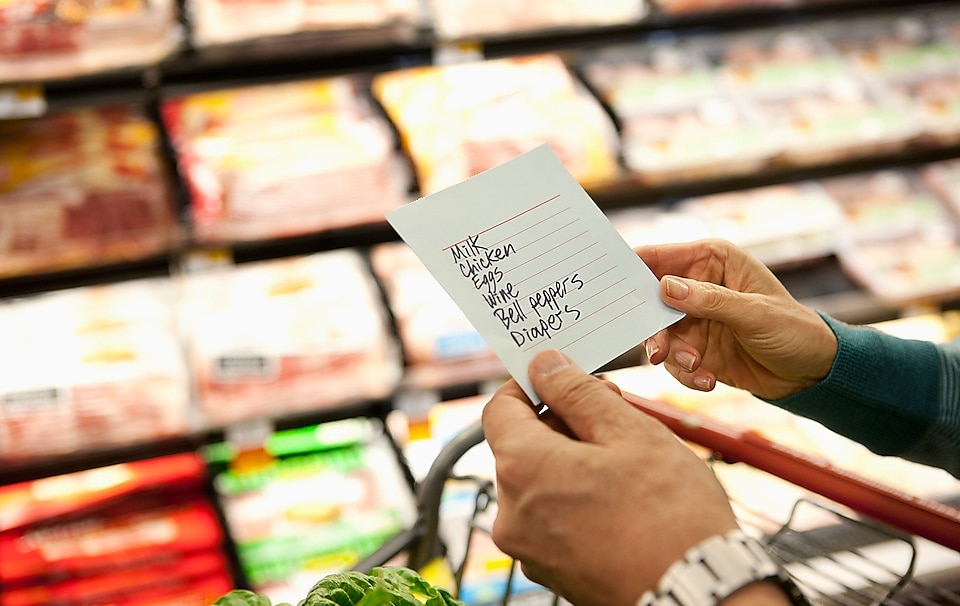 Milk
Chicken
Eggs
Wine
Bell peppers
Diapers